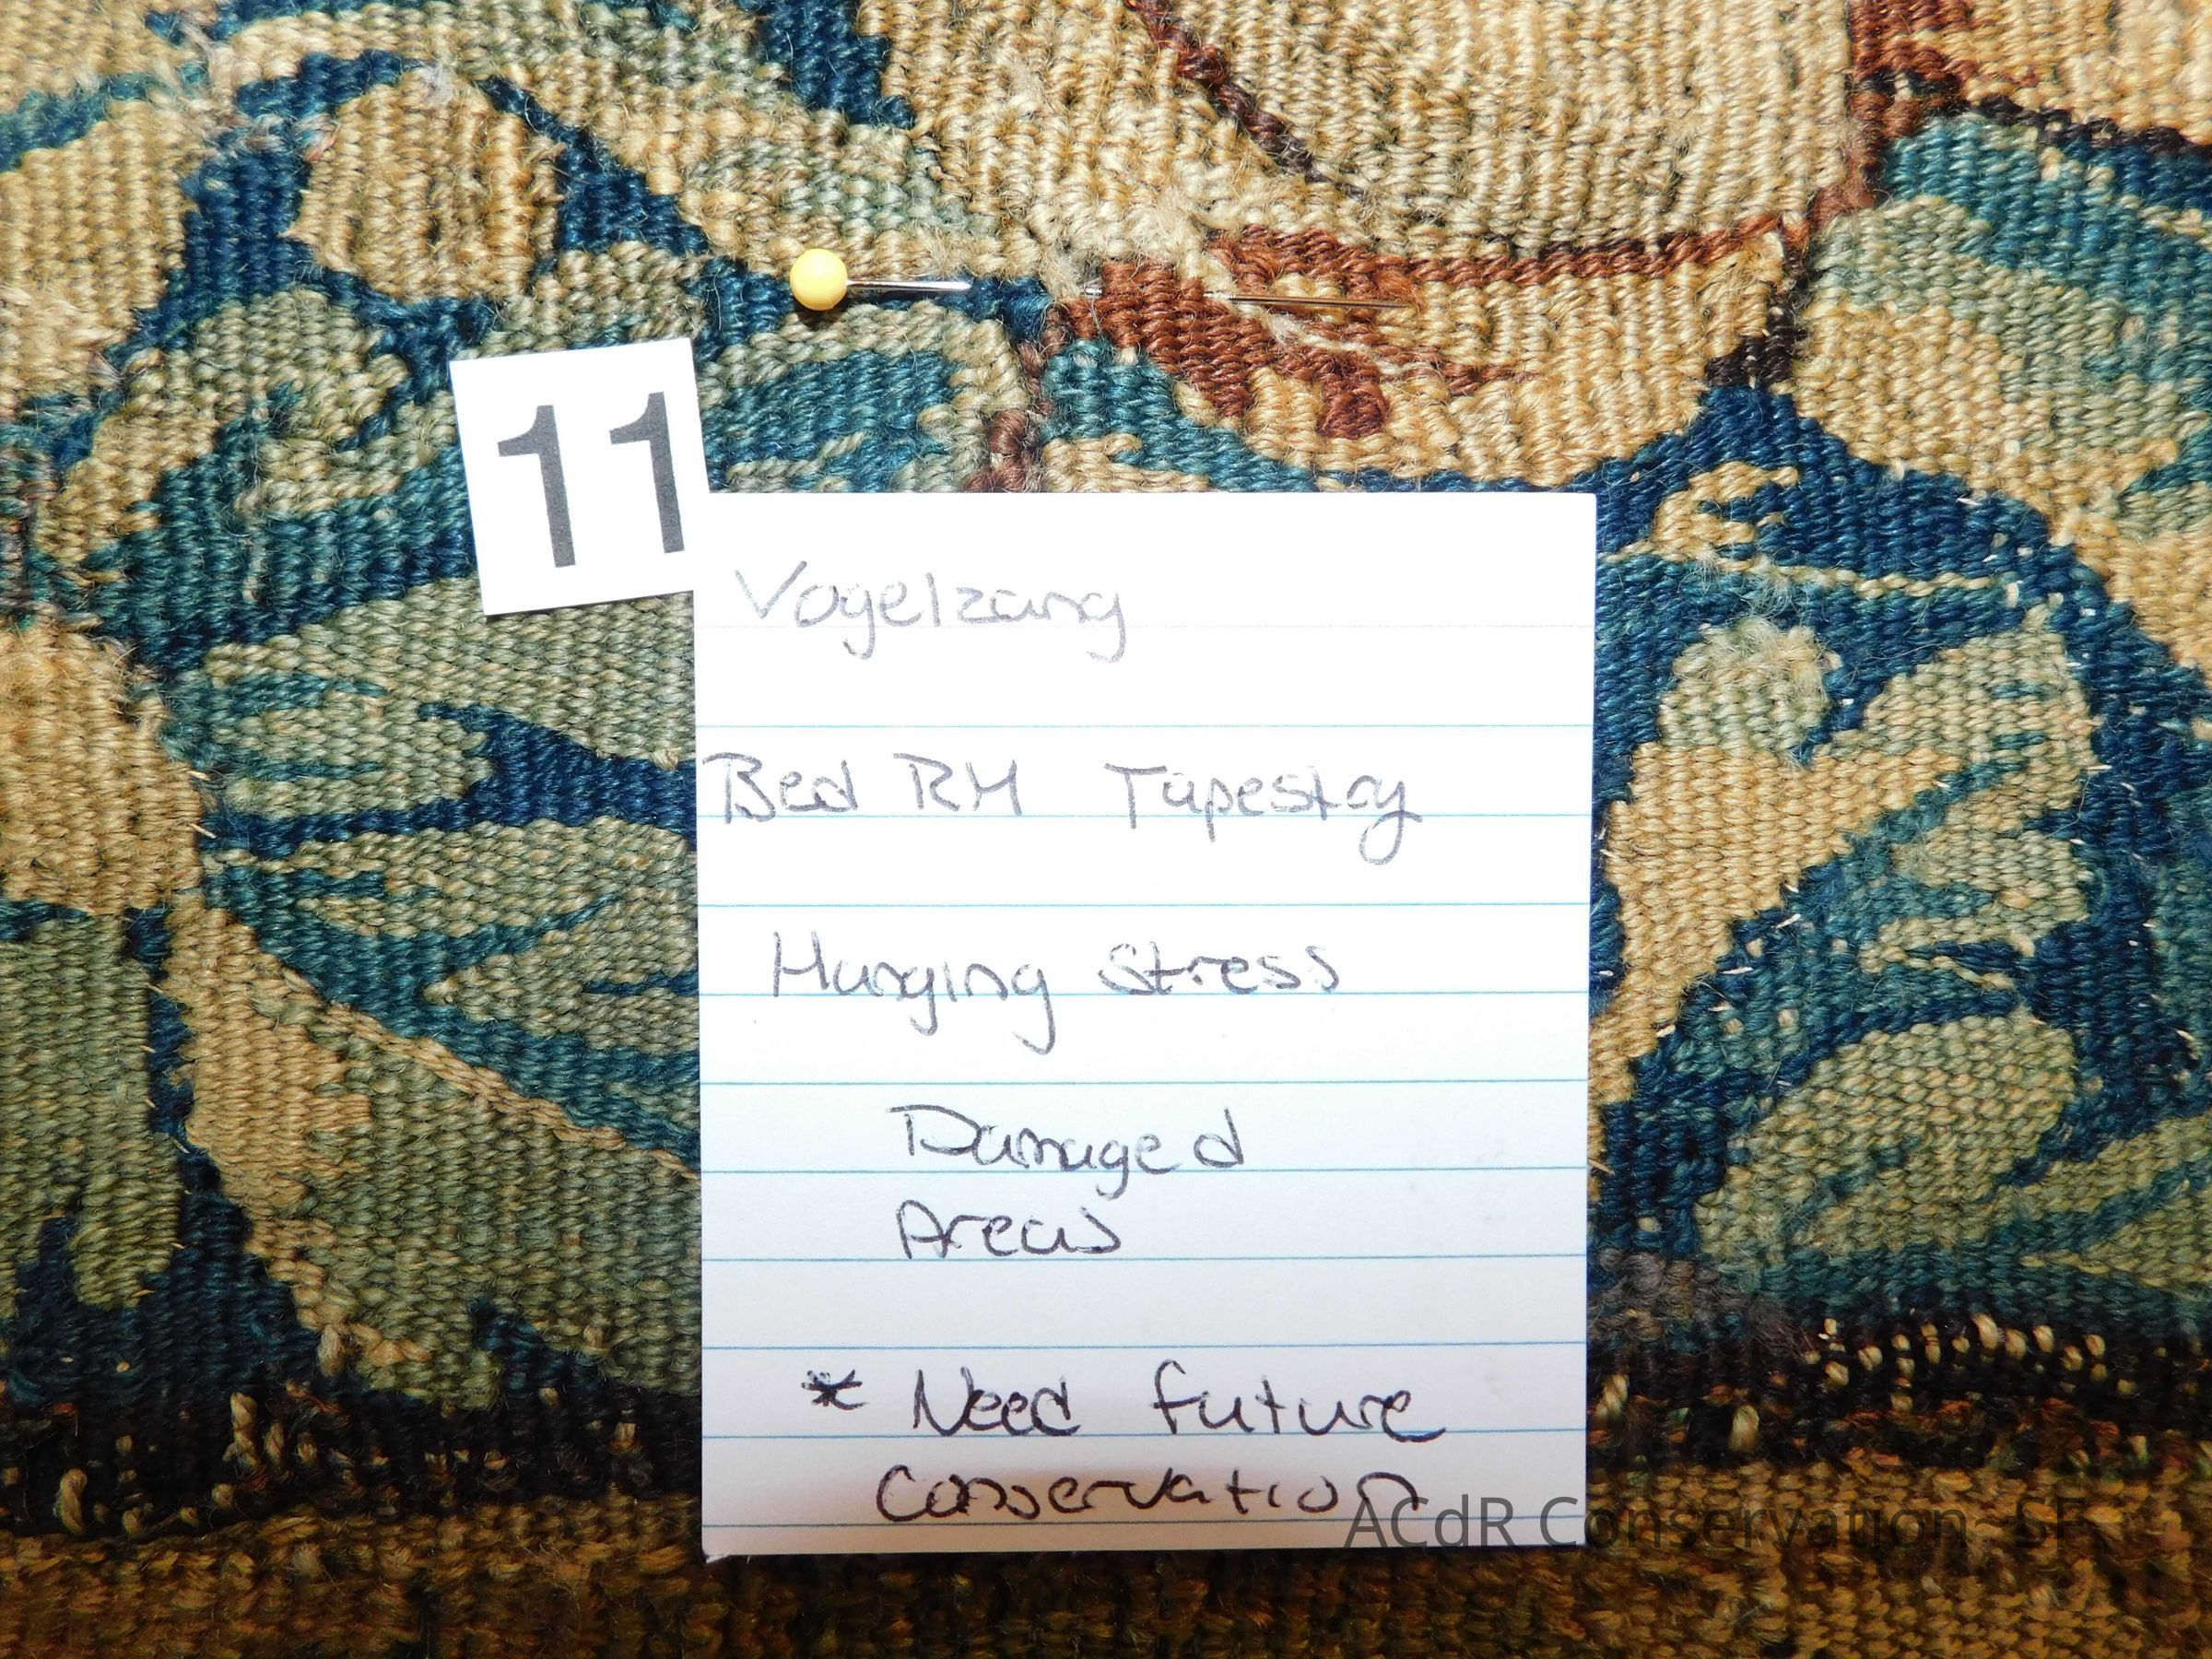 11
Vogelzang
Bed RM Tapestry
Hanging Stress
Damaged
Areas
* Need future
Conservation
ACdR Conservation SF